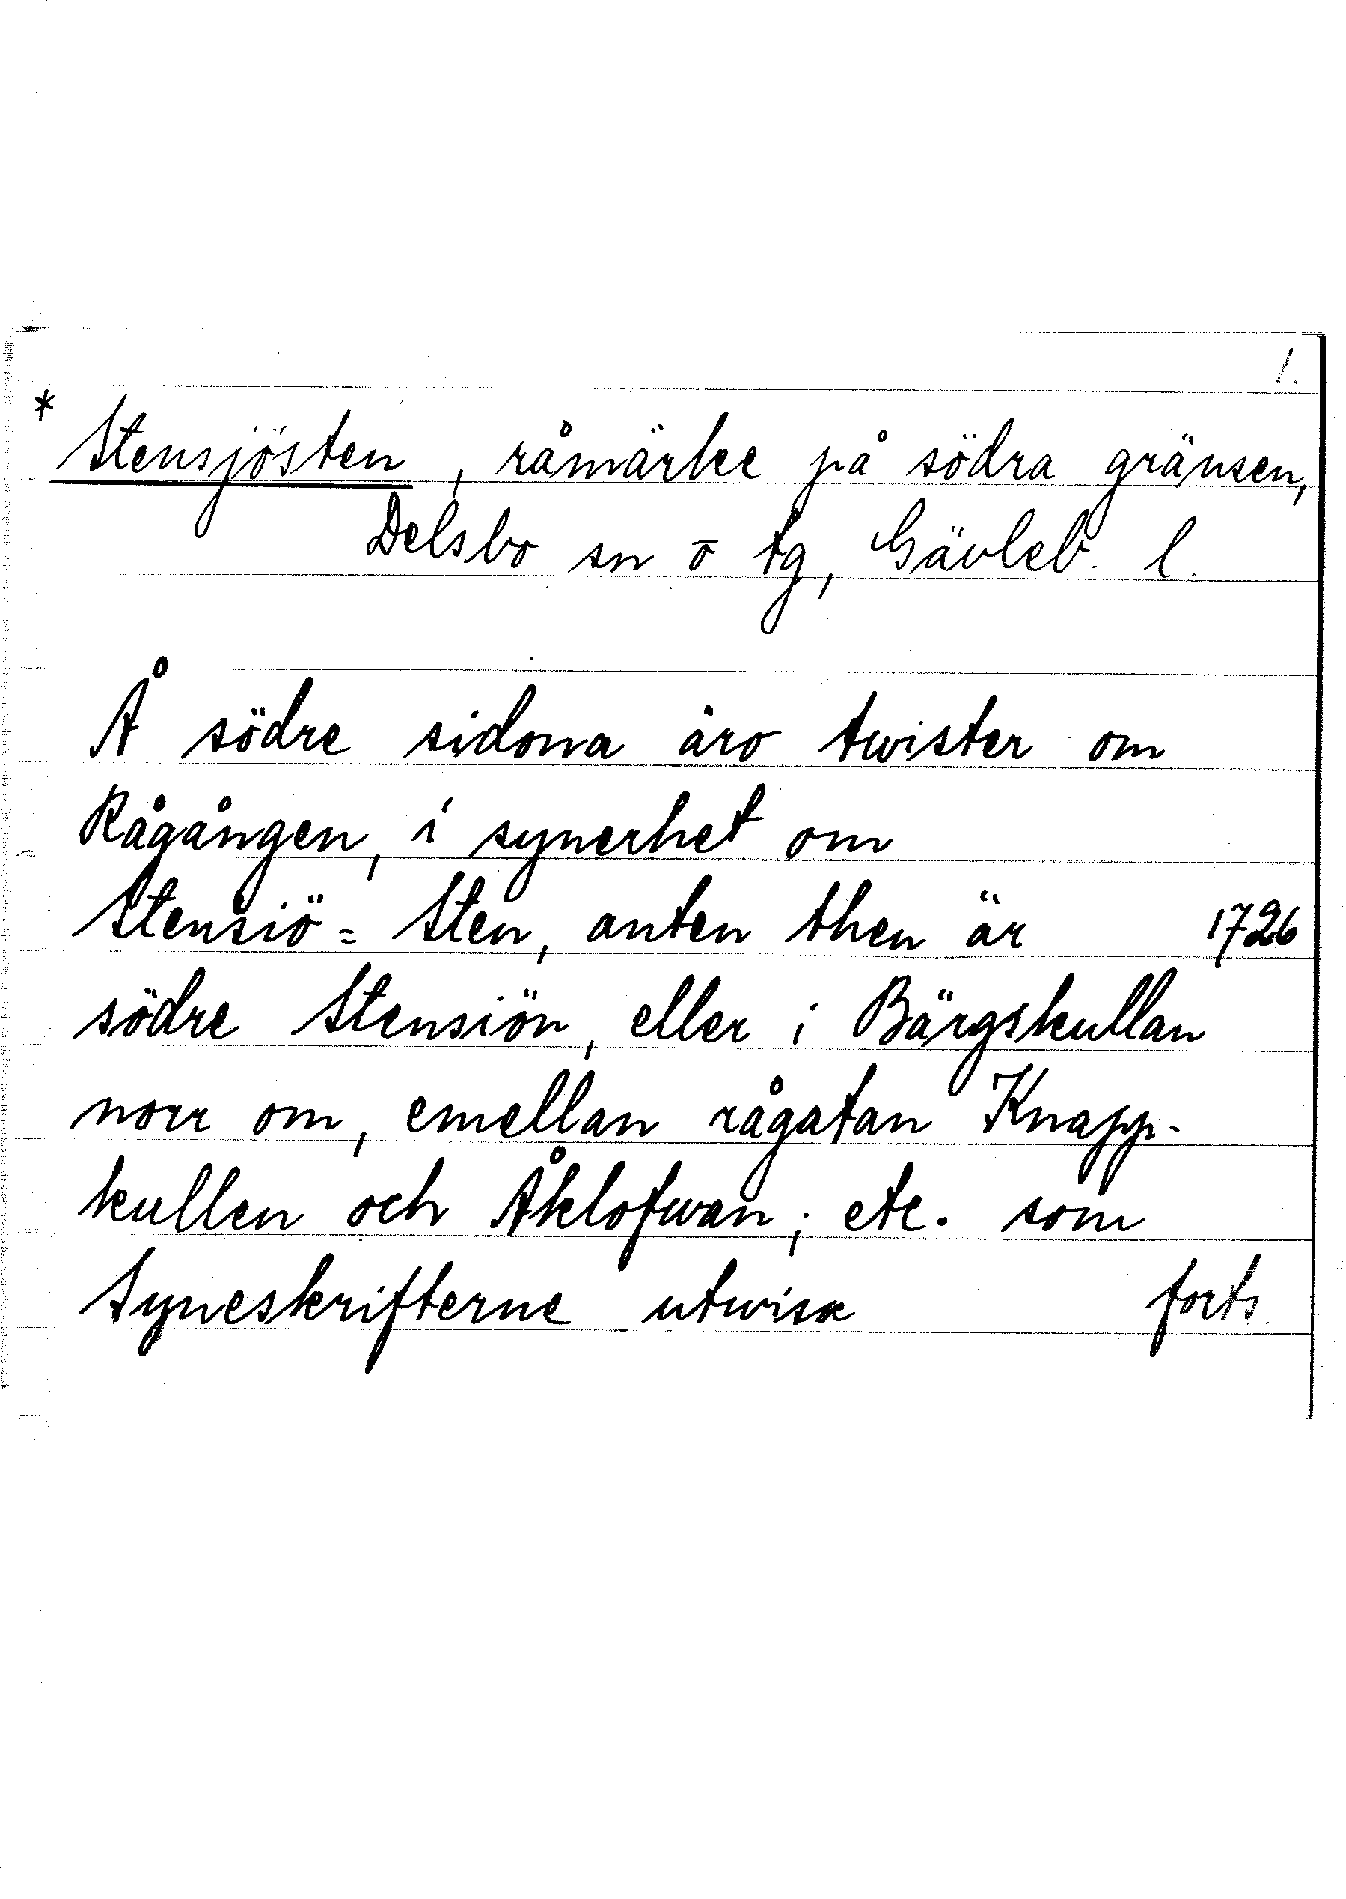 1.
* Stensjösten, råmärke på södra gränsen,
Delsbo sn o tg, Gävleb. l.
Å södre sidona äro twister om
Rågången, i synerhet om
Stensiö = Sten, anten then är 1726
södre Stensiön, eller i Bärgskullan
norr om, emellan rågatan Knapp-
kullen och Åklofwan; etc. som
Syneskrifterne utwisa forts.